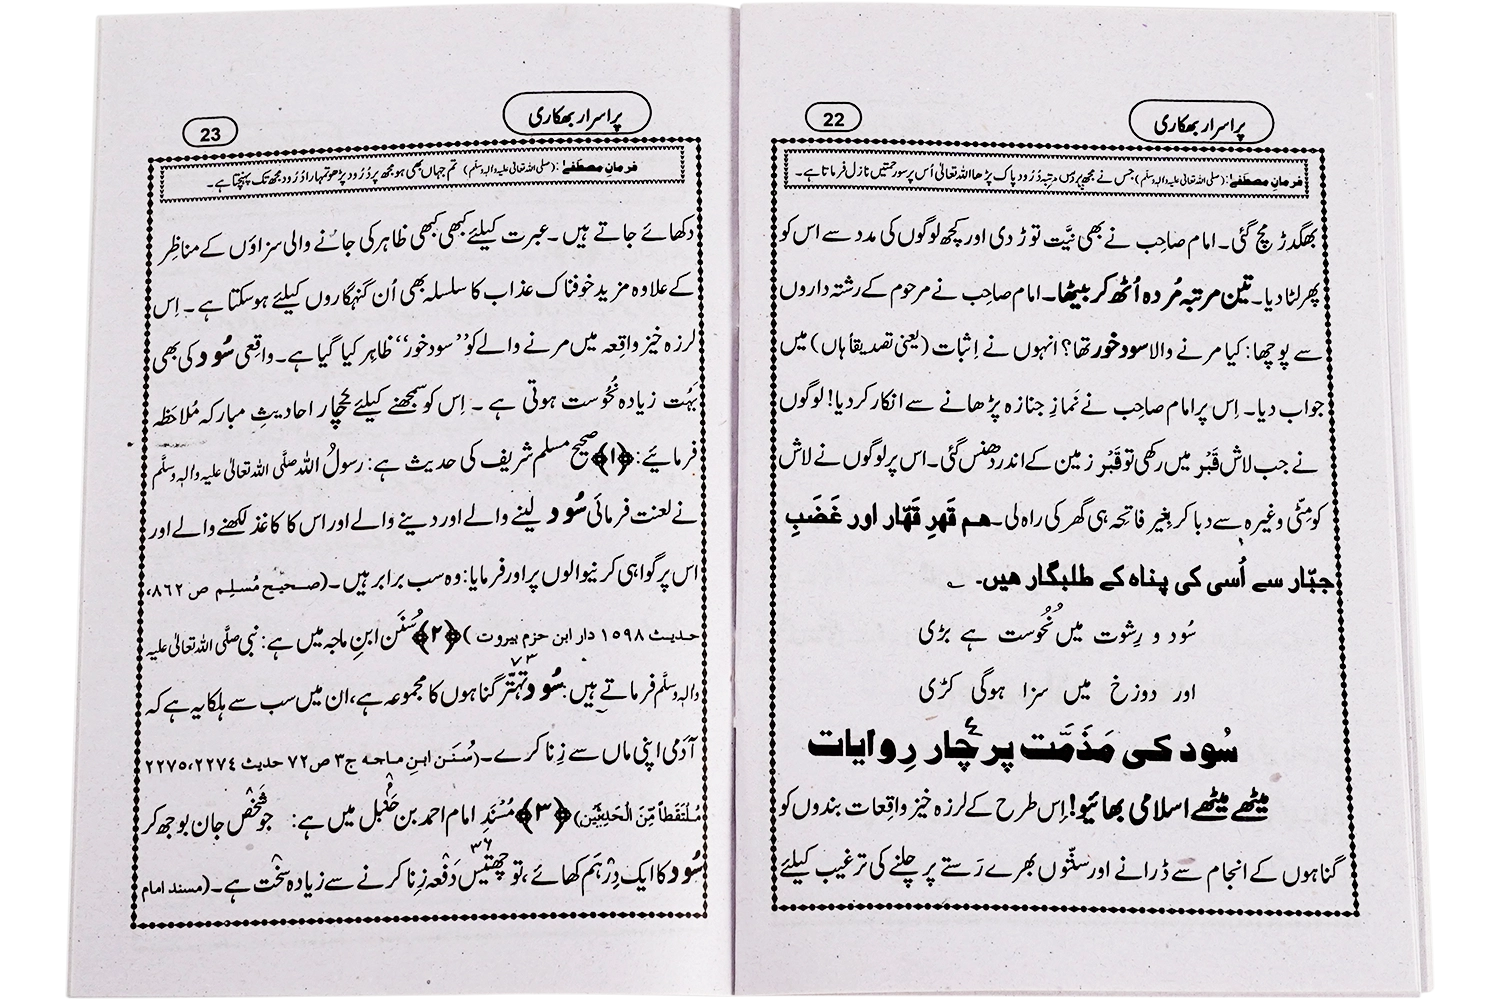 پراسرار بھکاری
22
فرمانِ مصطفےٰ: (صلی اللہ تعالیٰ علیہ والہ وسلم) جس نے مجھ پر دس مرتبہ دُرُود پاک پڑھا اللہ تعالیٰ اُس پر سو رحمتیں نازل فرماتا ہے۔
بھگدڑ مچ گئی۔ امام صاحِب نے بھی نیَّت توڑ دی اور کچھ لوگوں کی مدد سے اس کو
پھر لٹا دیا۔ تین مرتبہ مُردہ اُٹھ کر بیٹھا۔ امام صاحِب نے مرحوم کے رشتہ داروں
سے پوچھا: کیا مرنے والا سود خور تھا؟ انہوں نے اِثبات (یعنی تصدیقاً ہاں) میں
جواب دیا۔ اِس پر امام صاحِب نے نَمازِ جنازہ پڑھانے سے انکار کر دیا! لوگوں
نے جب لاش قَبْر میں رکھی تو قَبْر زمین کے اندر دھنس گئی۔ اس پر لوگوں نے لاش
کو مٹّی وغیرہ سے دبا کر بِغیر فاتحہ ہی گھر کی راہ لی۔ ہم قَہرِ قَہّار اور غَضَبِ
جبّار سے اُسی کی پناہ کے طلبگار ہیں۔
سُود و رِشوت میں نُحُوست ہے بڑی
اور دوزخ میں سزا ہوگی کڑی
سُود کی مَذَمَّت پر چار رِوایات
میٹھے میٹھے اسلامی بھائیو! اِس طرح کے لرزہ خیز واقِعات بندوں کو
گناہوں کے انجام سے ڈرانے اور سنّتوں بھرے رَستے پر چلنے کی ترغیب کیلئے
پراسرار بھکاری
23
فرمانِ مصطفےٰ: (صلی اللہ تعالیٰ علیہ والہ وسلم) تم جہاں بھی ہو مجھ پر دُرُود پڑھو تمہارا دُرُود مجھ تک پہنچتا ہے۔
دکھائے جاتے ہیں۔ عبرت کیلئے کبھی کبھی ظاہر کی جانے والی سزاؤں کے مناظِر
کے علاوہ مزید خوفناک عذاب کا سلسلہ بھی اُن گنہگاروں کیلئے ہوسکتا ہے۔ اِس
لرزہ خیز واقِعہ میں مرنے والے کو ’’سود خور‘‘ ظاہِر کیا گیا ہے۔ واقِعی سُود کی بھی
بَہُت زیادہ نُحُوست ہوتی ہے۔ اِس کو سمجھنے کیلئے چار احادیثِ مبارکہ مُلاحَظہ
فرمائیے: ﴿۱﴾ صحیح مسلم شریف کی حدیث ہے: رسولُ اللہ صلَّی اللہ تعالیٰ علیہ والہٖ وسلَّم
نے لعنت فرمائی سُود لینے والے اور دینے والے اور اس کا کاغذ لکھنے والے اور
اس پر گواہی کرنیوالوں پر اور فرمایا: وہ سب برابر ہیں۔ (صحیح مُسلِم ص ۸٦۲،
حدیث ۱۵۹۸ دار ابن حزم بیروت) ﴿۲﴾ سُنَنِ ابنِ ماجہ میں ہے: نبی صلَّی اللہ تعالیٰ علیہ
۷۳
والہٖ وسلَّم فرماتے ہیں: سُود تہتّر گناہوں کا مجموعہ ہے، ان میں سب سے ہلکا یہ ہے کہ
آدَمی اپنی ماں سے زِنا کرے۔ (سُنَن ابنِ ماجہ ج۳ ص۷۲ حدیث ۲۲۷٤،۲۲۷۵
مُلتَقَطاً مِّنَ الْحَدِیثَیْن) ﴿۳﴾ مُسْنَدِ امام احمد بن حَنبَل میں ہے: جو شَخْص جان بوجھ کر
۳٦
سُود کا ایک دِرْہَم کھائے، تو چھتیس دَفْعہ زِنا کرنے سے زیادہ سَخْت ہے۔ (مسند امام